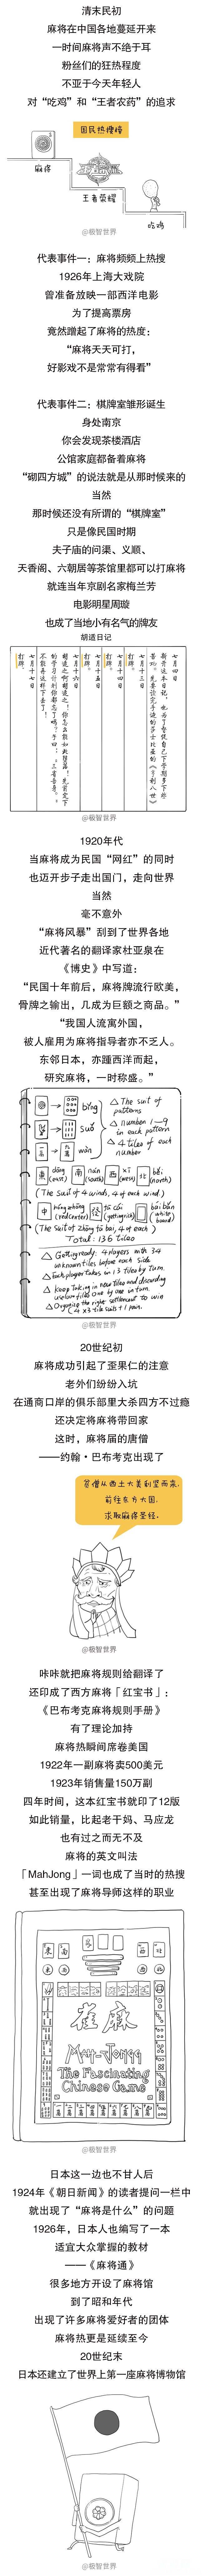 清末民初
麻将在中国各地蔓延开来
一时间麻将声不绝于耳
粉丝们的狂热程度
不亚于今天年轻人
对“吃鸡”和“王者农药”的追求
国民热搜榜
麻将
王者荣耀
吃鸡
@极智世界
代表事件一：麻将频频上热搜
1926年上海大戏院
曾准备放映一部西洋电影
为了提高票房
竟然蹭起了麻将的热度：
“麻将天天可打，
好影戏不是常常有得看”
代表事件二：棋牌室雏形诞生
身处南京
你会发现茶楼酒店
公馆家庭都备着麻将
“砌四方城”的说法就是从那时候来的
当然
那时候还没有所谓的“棋牌室”
只是像民国时期
夫子庙的问渠、义顺、
天香阁、六朝居等茶馆里都可以打麻将
就连当年京剧名家梅兰芳
电影明星周璇
也成了当地小有名气的牌友
胡适日记
七月四日
新开这本日记，也为了督促自己下学期多下些
苦功。先要读完手边的莎士比亚的《亨利八世》
七月十三日
打牌。
七月十四日
打牌。
七月十五日
打牌。
七月十六日
胡适之啊胡适之！你怎么能如此堕落！先前定下
的学习计划你都忘了吗？子曰：“吾日三省吾身。”
不能再这样下去了！
七月十七日
打牌。
@极智世界
1920年代
当麻将成为民国“网红”的同时
也迈开步子走出国门，走向世界
当然
毫不意外
“麻将风暴”刮到了世界各地
近代著名的翻译家杜亚泉在
《博史》中写道：
“民国十年前后，麻将牌流行欧美，
骨牌之输出，几成为巨额之商品。”
“我国人流寓外国，
被人雇用为麻将指导者亦不乏人。
东邻日本，亦踵西洋而起，
研究麻将，一时称盛。”
bǐng
suǒ
wàn
△ The suit of patterns
△ number 1—9 in each pattern
△ 4 tiles of each number
東 dōng (east) 南 nán (south) 西 xī (west) 北 běi (north)
(The suit of 4 winds, 4 of each wind)
(The suit of zhōng fā bái, 4 of each)
Total: 136 tiles
@极智世界
20世纪初
麻将成功引起了歪果仁的注意
老外们纷纷入坑
在通商口岸的俱乐部里大杀四方不过瘾
还决定将麻将带回家
这时，麻将届的唐僧
——约翰·巴布考克出现了
贫僧从西土大美利坚而来，
前往东方大国，
求取麻将圣经。
@极智世界
咔咔就把麻将规则给翻译了
还印成了西方麻将「红宝书」：
《巴布考克麻将规则手册》
有了理论加持
麻将热瞬间席卷美国
1922年一副麻将卖500美元
1923年销售量150万副
四年时间，这本红宝书就印了12版
如此销量，比起老干妈、马应龙
也有过之而无不及
麻将的英文叫法
「MahJong」一词也成了当时的热搜
甚至出现了麻将导师这样的职业
雀麻
Mah-Jongg
The Fascinating
Chinese Game
@极智世界
日本这一边也不甘人后
1924年《朝日新闻》的读者提问一栏中
就出现了“麻将是什么”的问题
1926年，日本人也编写了一本
适宜大众掌握的教材
——《麻将通》
很多地方开设了麻将馆
到了昭和年代
出现了许多麻将爱好者的团体
麻将热更是延续至今
20世纪末
日本还建立了世界上第一座麻将博物馆
@极智世界